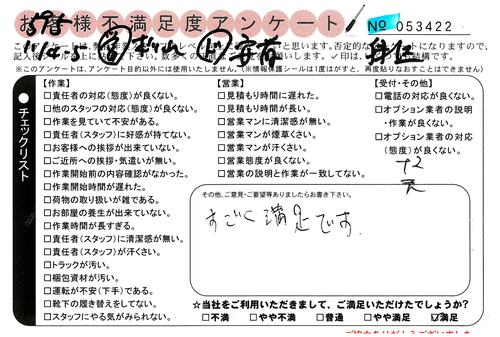 お客様不満足度アンケート
No 053422
チェックリスト
【作業】
□責任者の対応(態度)が良くない。
□他のスタッフの対応(態度)が良くない。
□作業を見ていて不安がある。
□責任者(スタッフ)に好感が持てない。
□お客様への挨拶が出来ていない。
□ご近所への挨拶・気遣いが無い。
□作業開始前の内容確認がなかった。
□作業開始時間が遅れた。
□荷物の取り扱いが雑である。
□お部屋の養生が出来ていない。
□作業時間が長すぎる。
□責任者(スタッフ)に清潔感が無い。
□責任者(スタッフ)が汗くさい。
□トラックが汚い。
□梱包資材が汚い。
□運転が不安(下手)である。
□靴下の履き替えをしてない。
□スタッフにやる気がみられない。
【営業】
□見積もり時間に遅れた。
□見積もり時間が長い。
□営業マンに清潔感が無い。
□営業マンが煙草くさい。
□営業マンが汗くさい。
□営業態度が良くない。
□営業の説明と作業が一致してない。
【受付・その他】
□電話の対応が良くない。
□オプション業者の説明
・作業が良くない。
□オプション業者の対応
(態度)が良くない。
その他、ご意見・ご要望等ありましたらお書き下さい。
すごく満足です。
☆当社をご利用いただきまして、ご満足いただけたでしょうか?
□不満 □やや不満 □普通 □やや満足 ☑満足